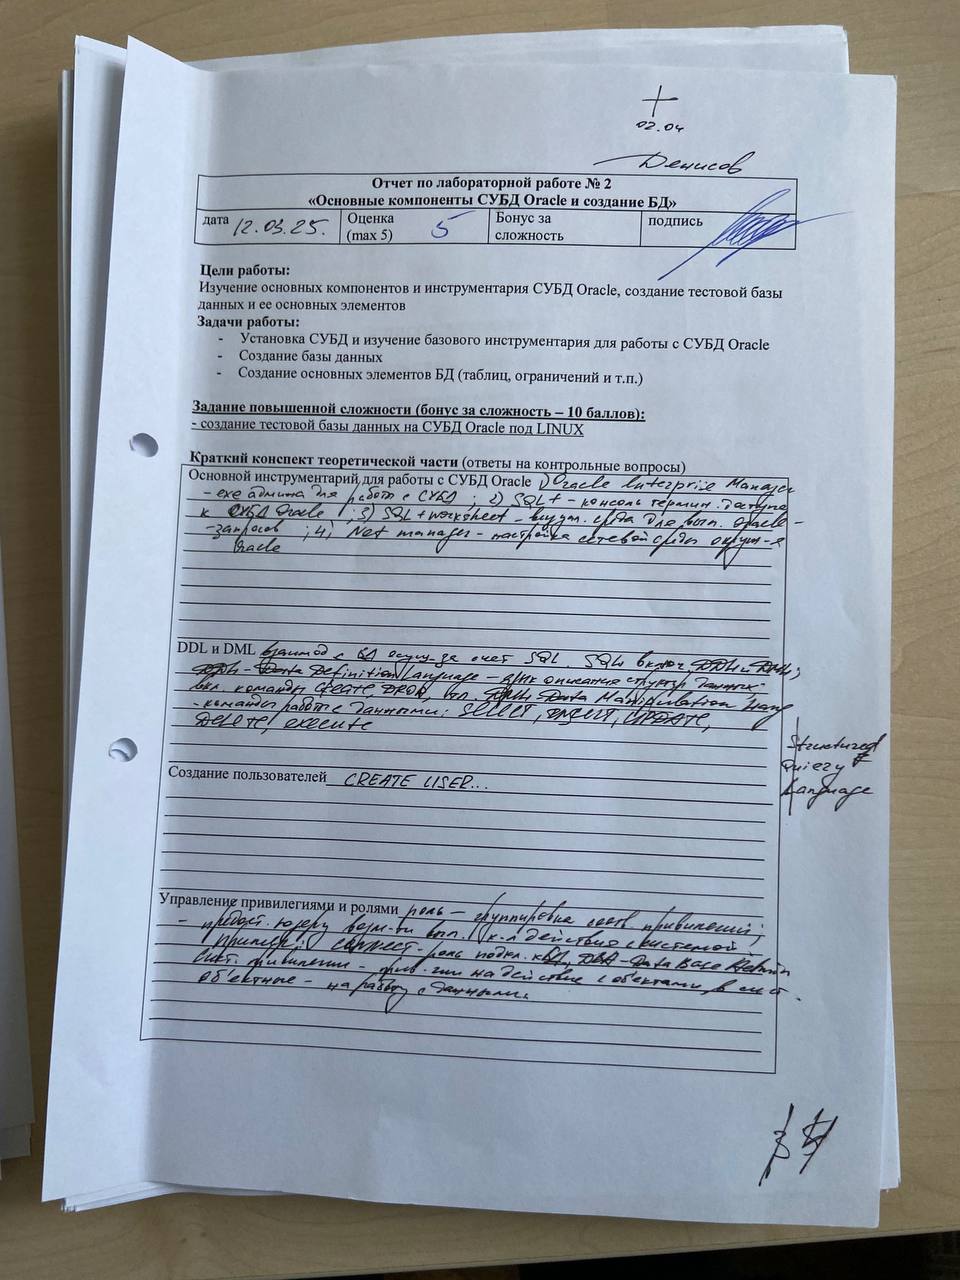 02.04
Денисов
Отчет по лабораторной работе № 2
«Основные компоненты СУБД Oracle и создание БД»
дата 12.03.25. Оценка (max 5) 5 Бонус за сложность подпись
Цели работы:
Изучение основных компонентов и инструментария СУБД Oracle, создание тестовой базы
данных и ее основных элементов
Задачи работы:
- Установка СУБД и изучение базового инструментария для работы с СУБД Oracle
- Создание базы данных
- Создание основных элементов БД (таблиц, ограничений и т.п.)
Задание повышенной сложности (бонус за сложность – 10 баллов):
- создание тестовой базы данных на СУБД Oracle под LINUX
Краткий конспект теоретической части (ответы на контрольные вопросы)
Основной инструментарий для работы с СУБД Oracle 1) Oracle Enterprise Manager
админа для работы с СУБД ; 2) SQL+ - консоль термин. доступа
к СУБД Oracle ; 3) SQL+ worksheet - визуал. среда для вып. Oracle-
-запросов ; 4) Net manager - настройка сетевой среды окруж-я
Oracle
DDL и DML взаимод с БД осущ-за счет SQL. SQL включ DDL и DML;
DDL - Data Definition Language - язык описания структур данных.
вкл. команды Create, DROP, DML - Data Manipulation Lang
- команды работы с данными: SELECT, INSERT, UPDATE,
DELETE, execute
Structured
Quiery
Language
Создание пользователей CREATE USER...
Управление привилегиями и ролями роль - группировка привилегий;
- предост. юзеру возм-ти вып. к-л действия с системой
Пример: connect - роль подкл. к БД, DBA - Data Base Admin
сист. привилегии - на действие с объектами в сист.
объектные - на работу с данными.